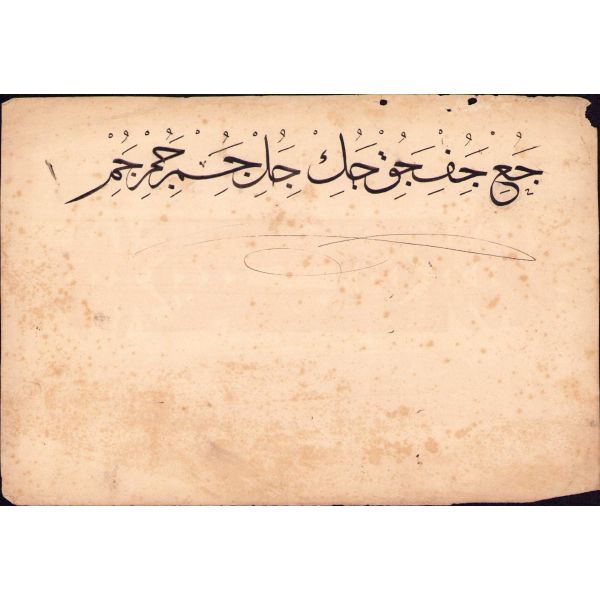 جع جف جق جك جل جم جم جم